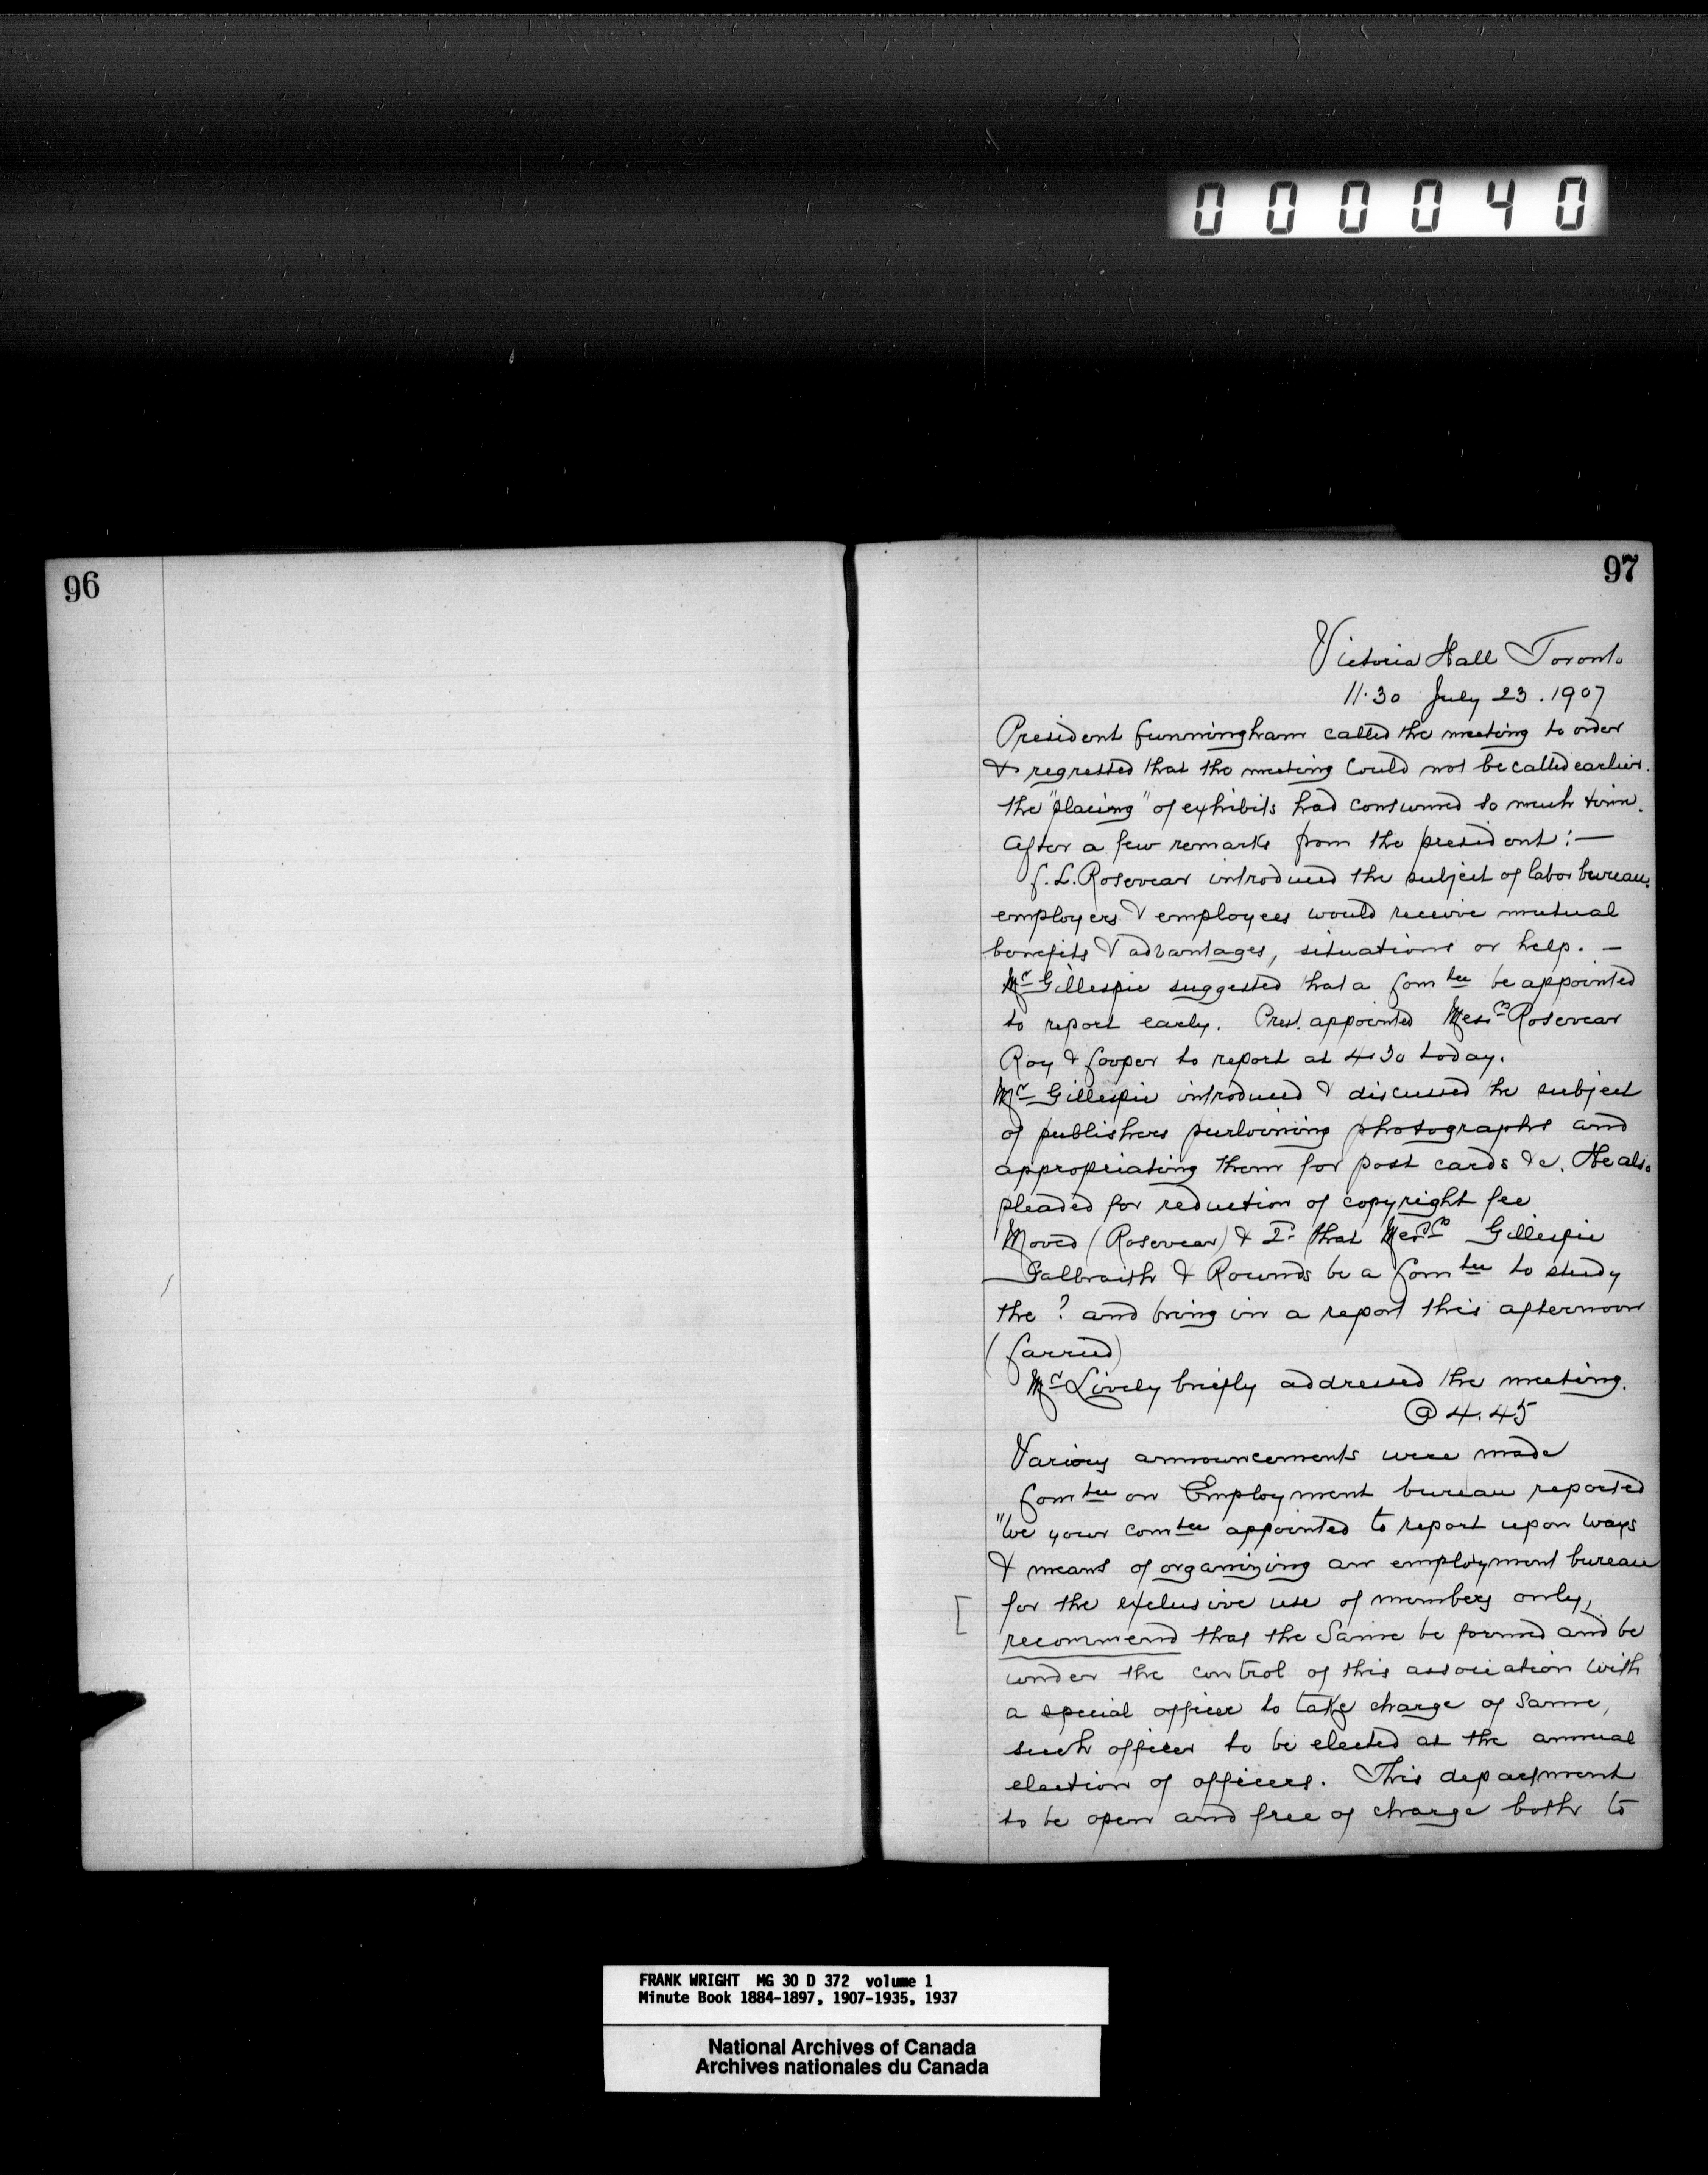 000040
96
97
Victoria Hall Toronto
11.30 July 23. 1907
President Cunningham called the meeting to order
& regretted that the meeting could not be called earlier.
the "placing" of exhibits had consumed so much time.
After a few remarks from the president:—
C. L. Rosevear introduced the subject of labor bureau.
employers & employees would receive mutual
benefits & advantages, situations or help. —
Mr Gillespie suggested that a Comtee be appointed
to report early. Prest. appointed Messrs Rosevear
Roy & Cooper to report at 4.30 today.
Mr Gillespie introduced & discussed the subject
of publishers purloining photographs and
appropriating them for post cards &c. He also
pleaded for reduction of copyright fee
Moved (Rosevear) & 2d that Messrs Gillespie
Galbraith & Rounds be a Comtee to study
the ? and bring in a report this afternoon
(Carried)
Mr Lively briefly addressed the meeting.
@ 4.45
Various announcements were made
Comtee on Employment bureau reported
"We your comtee appointed to report upon ways
& means of organizing an employment bureau
[ for the exclusive use of members only,
recommend that the same be formed and be
under the control of this association with
a special officer to take charge of same,
such officer to be elected at the annual
election of officers. This department
to be open and free of charge both to
FRANK WRIGHT MG 30 D 372 volume 1
Minute Book 1884-1897, 1907-1935, 1937
National Archives of Canada
Archives nationales du Canada